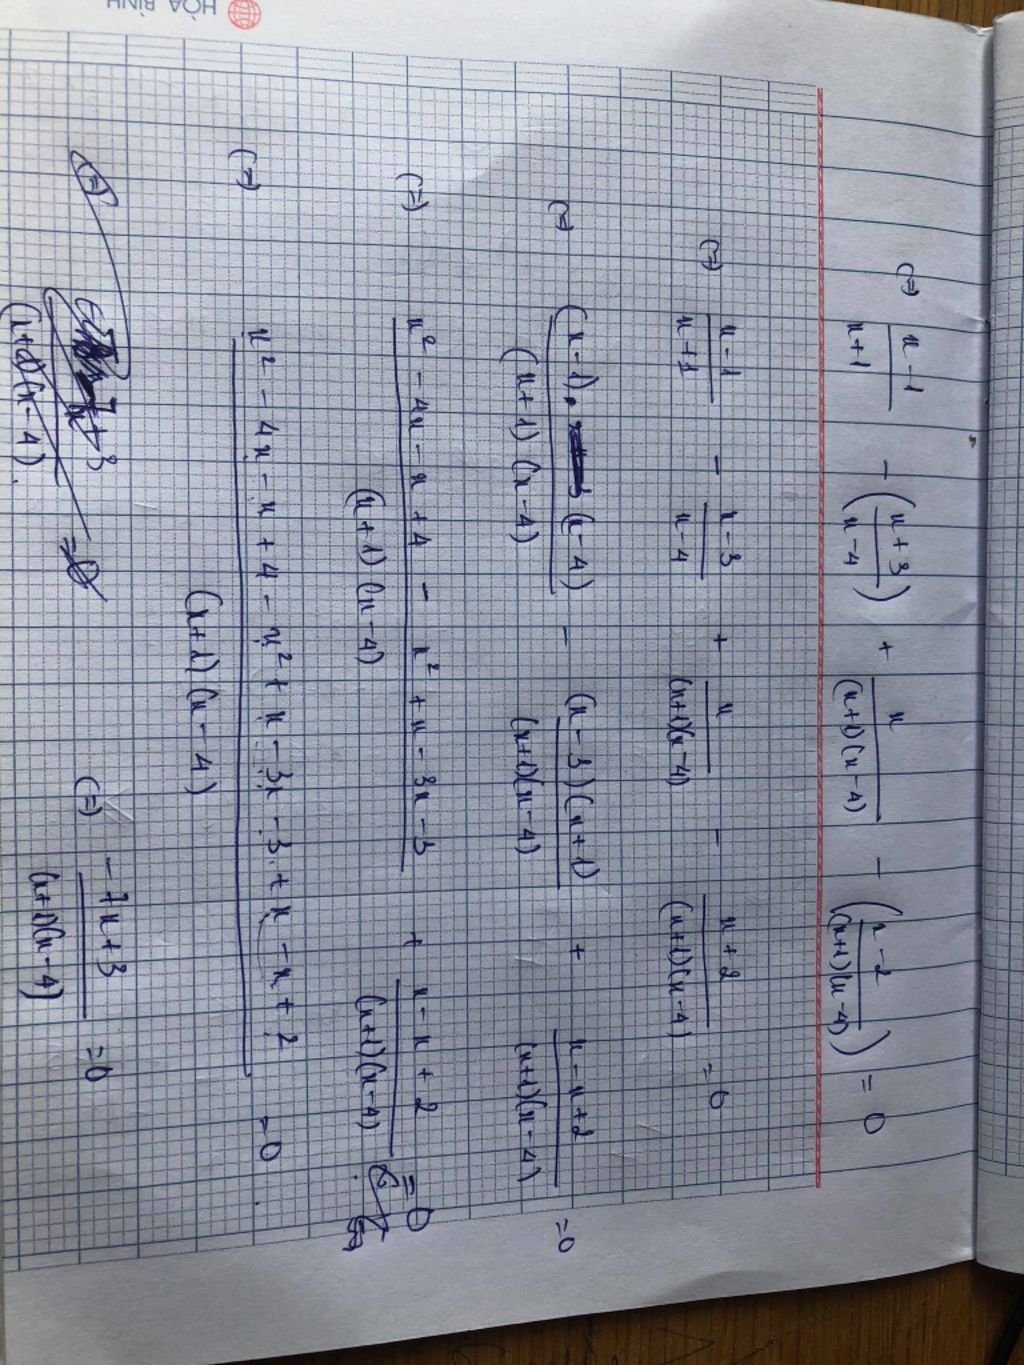 HÒA BÌNH
(=) x-1/x+1 - (x+3/x-4) + x/(x+1)(x-4) - (x-2/(x+1)(x-4)) = 0
(=) x-1/x+1 - x-3/x-4 + x/(x+1)(x-4) - x+2/(x+1)(x-4) = 0
(=) (x-1).(x-4)/(x+1)(x-4) - (x-3)(x+1)/(x+1)(x-4) + x-x+2/(x+1)(x-4) = 0
(=) x²-4x-x+4 - x²+x-3x-3/(x+1)(x-4) + x-x+2/(x+1)(x-4) = 0
(=) x²-4x-x+4-x²+x-3x-3+x-x+2/(x+1)(x-4) = 0
(=) (x+1)(x-4) = 0
(=) -7x+3/(x+1)(x-4) = 0